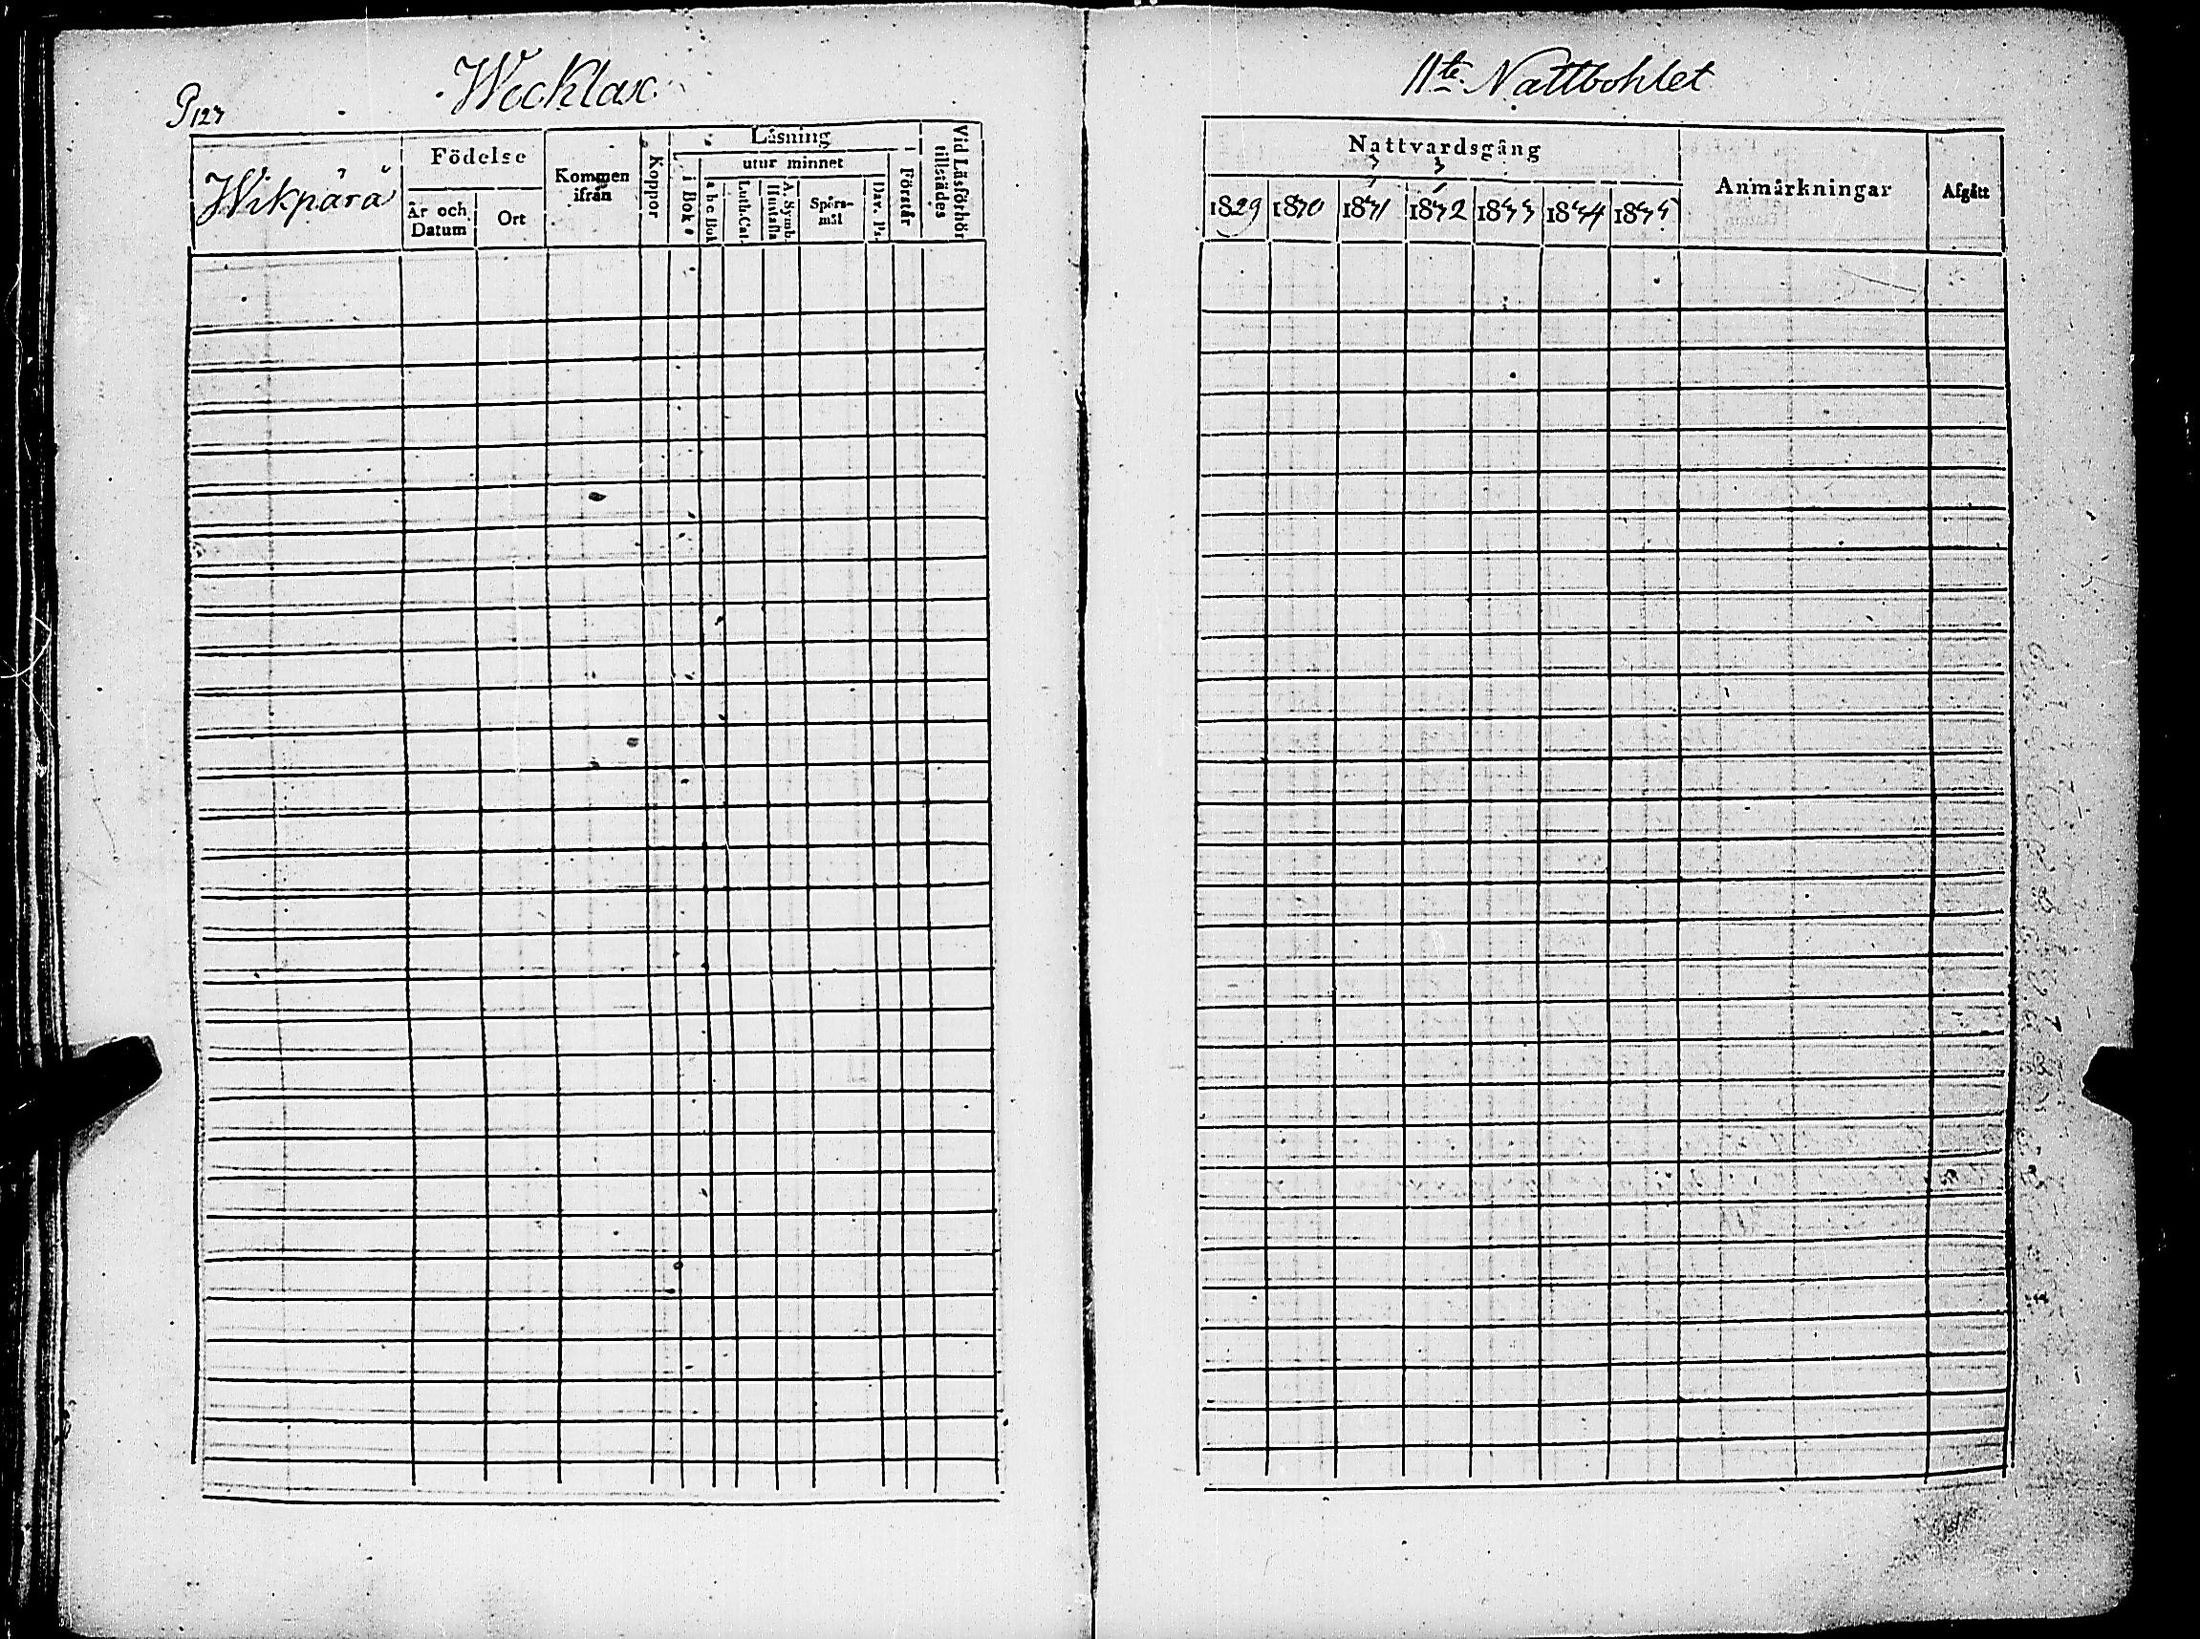 P 127
Wecklax
Wikpärä
Födelse
År och Datum
Ort
Kommen ifrån
Koppor
Läsning
i Bok
utur minnet
a b c Bok
Luth. Cat.
A. Symb. Hustafla
Spörs-mål
Dav. Ps.
Förstår
Vid Läsförhör tillstädes
11te Nattbohlet
Nattvardsgång
1829 1830 1831 1832 1833 1834 1835
Anmärkningar
Afgått